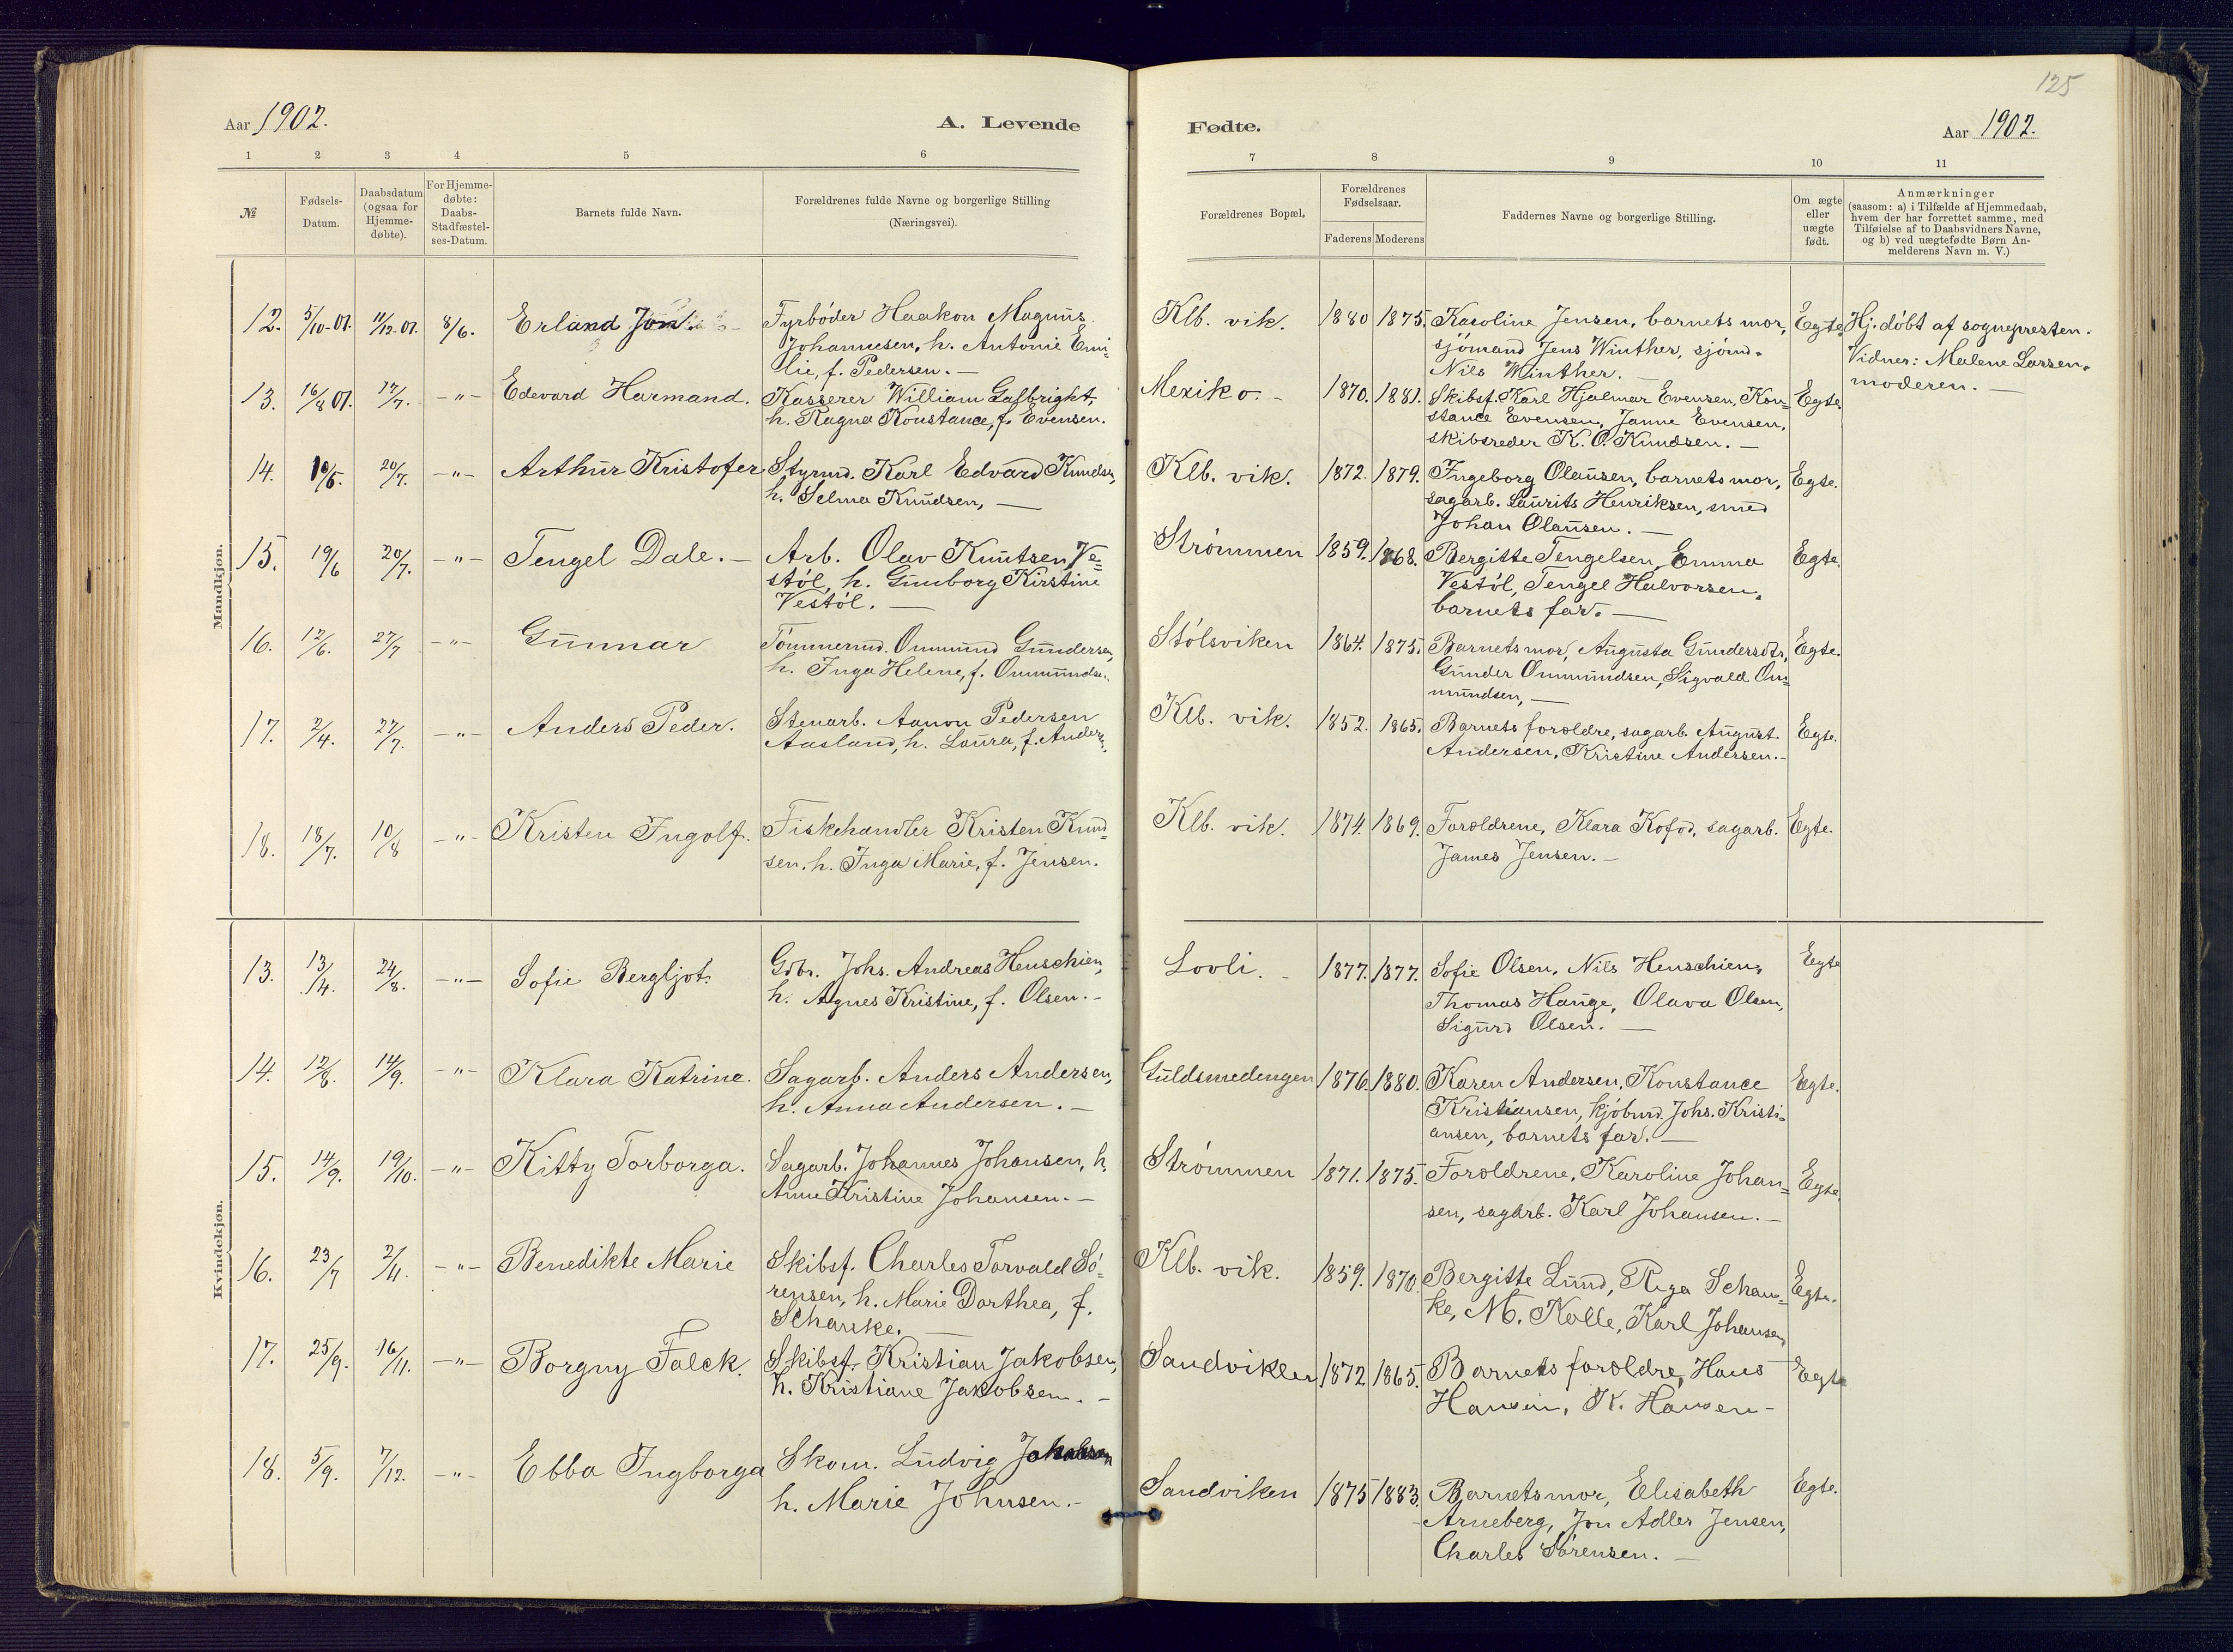 125
Aar 1902.
A. Levende
Fødte.
Aar 1902.
1 2 3 4 5 6 7 8 9 10 11
№
Fødsels-
Datum.
Daabsdatum
(ogsaa for
Hjemme-
døbte).
For Hjemme-
døbte:
Daabs-
Stadfæstel-
ses-Datum.
Barnets fulde Navn.
Forældrenes fulde Navne og borgerlige Stilling
(Næringsvei).
Forældrenes Bopæl.
Forældrenes
Fødselsaar.
Faderens Moderens
Faddernes Navne og borgerlige Stilling.
Om ægte
eller
uægte
født.
Anmærkninger
(saasom: a) i Tilfælde af Hjemmedaab,
hvem der har forrettet samme, med
Tilføielse af to Daabsvidners Navne,
og b) ved uægtefødte Børn An-
melderens Navn m. V.)
Mandkjøn.
12. 5/10-01. 11/12-01. 8/6. Erland Jon
Fyrbøder Haakon Magnus
Johannesen, h. Antonie Emi=
lie, f. Pedersen. —
Klb. vik. 1880 1875.
Karoline Jensen, barnets mor,
sjømand Jens Winther, sjømd.
Nils Winther. —
Egte.
Hj. døbt af sognepresten.
Vidner: Malene Larsen,
moderen. —
13. 16/8 01. 17/7. -"- Edevard Harmand.
Kasserer William Galbright,
h. Ragna Konstance, f. Evensen.
Mexiko. - 1870. 1881.
Skibsf. Karl Hjalmar Evensen, Kon=
stance Evensen, Janne Evensen,
skibsreder K. O. Knudsen. —
Egte.
14. 10/5. 20/7. -"- Arthur Kristofer
Styrmd. Karl Edvard Knudsen,
h. Selma Knudsen, —
Klb. vik. 1872. 1879.
Ingeborg Olausen, barnets mor,
sagarb. Laurits Henriksen, smed
Johan Olausen. —
Egte.
15. 19/6 20/7. -"- Tengel Dale. —
Arb. Olav Knutsen Ve=
støl, h. Gunborg Kirstine
Vestøl. —
Strømmen 1859. 1868.
Bergitte Tengelsen, Emma
Vestøl, Tengel Halvorsen,
barnets far. —
Egte.
16. 12/6. 27/7 -"- Gunnar
Tømmermd. Ommund Gundersen,
h. Inga Helene, f. Ommundsen.
Stølsviken 1864. 1875.
Barnets mor, Augusta Gundersdtr,
Gunder Ommundsen, Sigvald Om=
mundsen, —
Egte.
17. 2/4. 27/7. -"- Anders Peder.
Stenarb. Aanon Pedersen
Aasland, h. Laura, f. Anders.
Klb. vik. 1852. 1865.
Barnets forældre, sagarb. August
Andersen, Kristine Andersen. -
Egte.
18. 18/7. 10/8 -"- Kristen Ingolf.
Fiskehandler Kristen Knud=
sen, h. Inga Marie, f. Jensen.
Klb. vik. 1874. 1869.
Forældrene, Klara Kofod, sagarb.
James Jensen. —
Egte.
Kvindekjøn.
13. 13/4. 24/8. -"- Sofie Bergljot.
Gdbr. Johs. Andreas Henschien,
h. Agnes Kristine, f. Olsen. -
Lovli. - 1877. 1877.
Sofie Olsen, Nils Henschien,
Thomas Hauge, Olava Olsen,
Sigurd Olsen. —
Egte
14. 12/8. 14/9. -"- Klara Katrine.
Sagarb. Anders Andersen,
h. Anna Andersen. —
Guldsmedengen 1876. 1880.
Karen Andersen, Konstance
Kristiansen, kjøbmd. Johs. Kristi=
ansen, barnets far. —
Egte.
15. 14/9. 19/10. -"- Kitty Torborga.
Sagarb. Johannes Johansen, h.
Anne Kristine Johansen. —
Strømmen 1871. 1875.
Forældrene, Karoline Johan=
sen, sagarb. Karl Johansen. —
Egte.
16. 23/7 2/11. -"- Benedikte Marie
Skibsf. Charles Torvald Sø=
rensen, h. Marie Dorthea, f.
Schanke. —
Klb. vik. 1859. 1870.
Bergitte Lund, Riga Schan=
ke, M. Kolle, Karl Johansen,
Egte.
17. 25/9. 16/11. -"- Borgny Falck.
Skibsf. Kristian Jakobsen,
h. Kristiane Jakobsen. -
Sandviken 1872 1865.
Barnets forældre, Hans
Hansen, K. Hansen -
Egte
18. 5/9. 7/12. -"- Ebba Ingborga
Skom. Ludvig
h. Marie Johnsen. -
Sandviken 1875 1883.
Barnets mor, Elisabeth
Arneberg, Jon Adler Jensen,
Charles Sørensen. —
Egte.